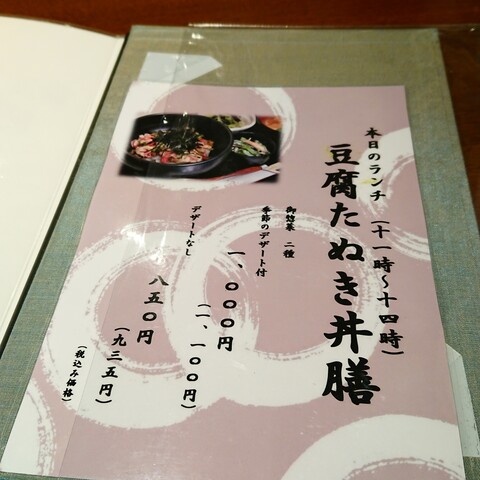 本日のランチ（十一時～十四時）
豆腐たぬき丼膳
御惣菜 二種
季節のデザート付
一、〇〇〇円
（一、一〇〇円）
デザートなし
八五〇円
（九三五円）
（税込み価格）